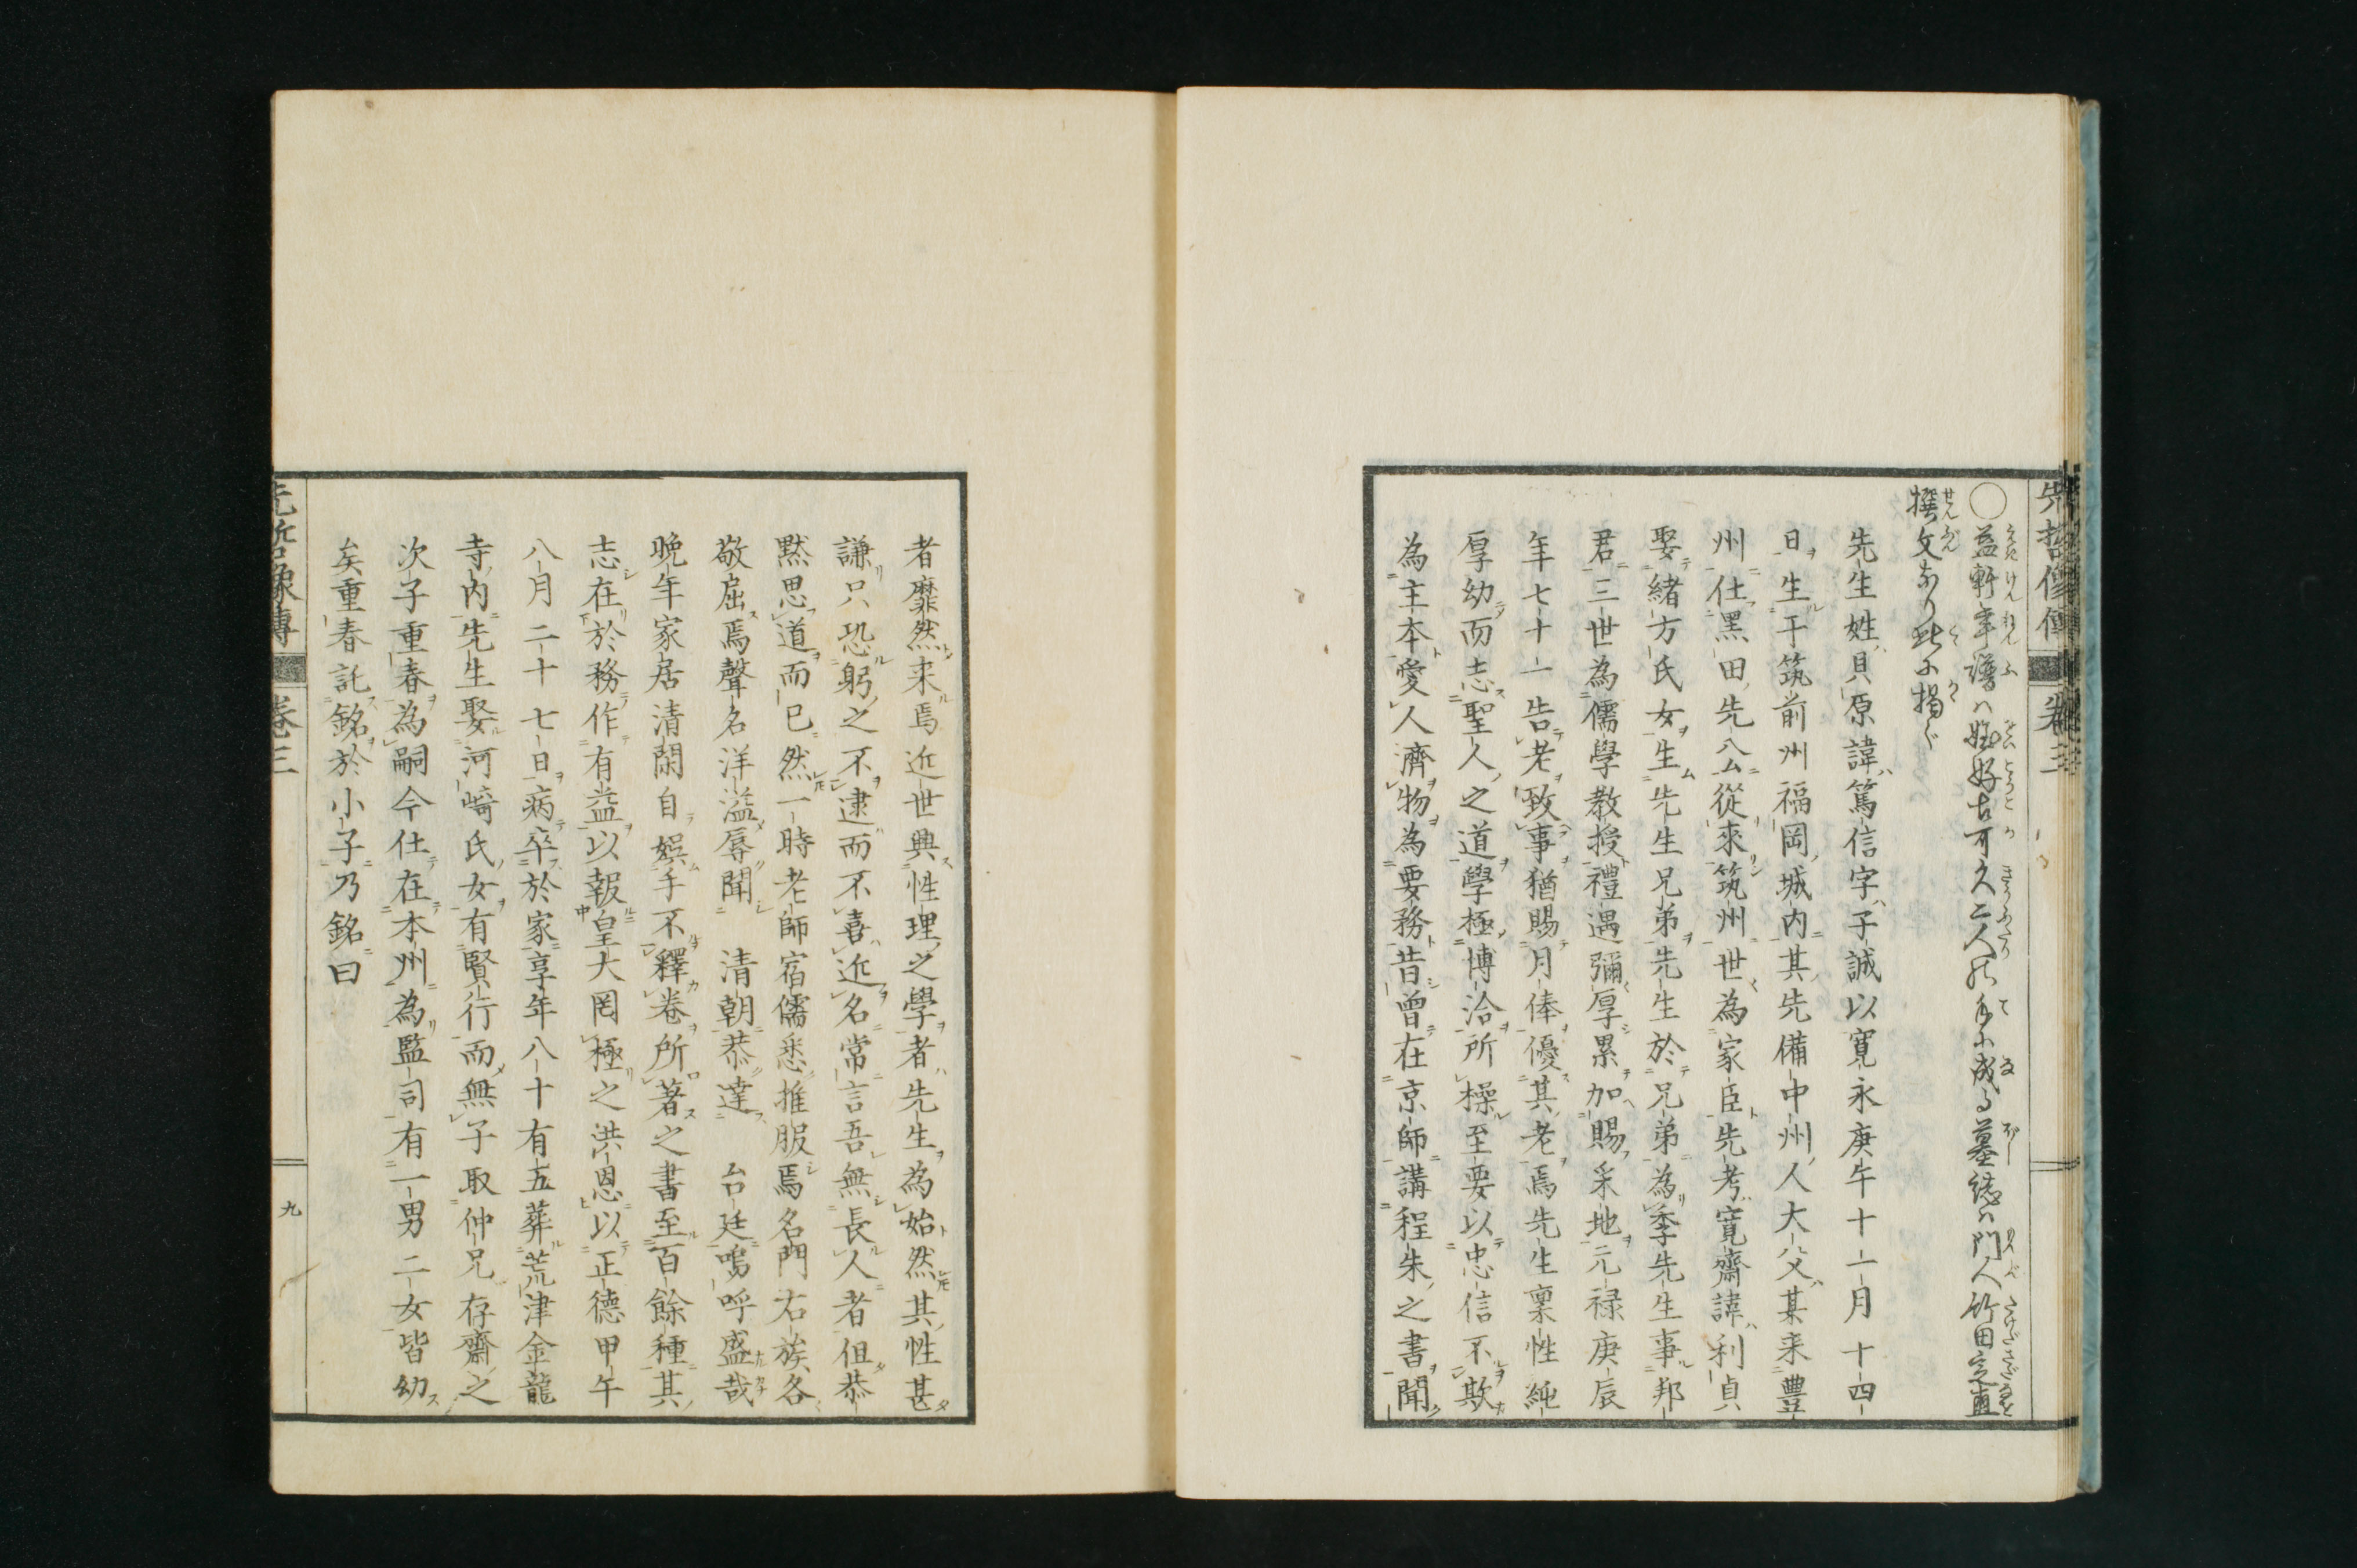 先哲像傳 卷三
○益軒年譜ハ姪好古可久二人の手に成る墓誌ハ門人竹田定直
撰文あり此に掲ぐ
先生姓貝原諱篤信字子誠以寛永庚午十一月十四
日生于筑前州福岡城内其先備中州人大父某来豊
州仕黒田先公從來筑州世為家臣先考寛齋諱利貞
娶緒方氏女生先生兄弟先生於兄弟為季先生事邦
君三世為儒學教授禮遇彌厚累加賜采地元禄庚辰
年七十一告老致事猶賜月俸優其老焉先生稟性純
厚幼而志聖人之道學極博洽所操至要以忠信不欺
為主本愛人濟物為要務昔曾在京師講程朱之書聞
者靡然来焉近世興性理之學者先生為始然其性甚
謙只恐躬之不逮而不喜近名常言吾無長人者但恭
黙思道而已然一時老師宿儒悉推服焉名門右族各
敬屈焉聲名洋溢辱聞 清朝恭達 台廷嗚呼盛哉
晩年家居清閑自娯手不釋卷所著之書至百餘種其
志在於務作有益以報皇大罔極之洪恩以正德甲午
八月二十七日病卒於家享年八十有五葬荒津金龍
寺内先生娶河崎氏女有賢行而無子取仲兄存齋之
次子重春為嗣今仕在本州為監司有一男二女皆幼
矣重春託銘於小子乃銘曰
先哲像傳 卷三
九